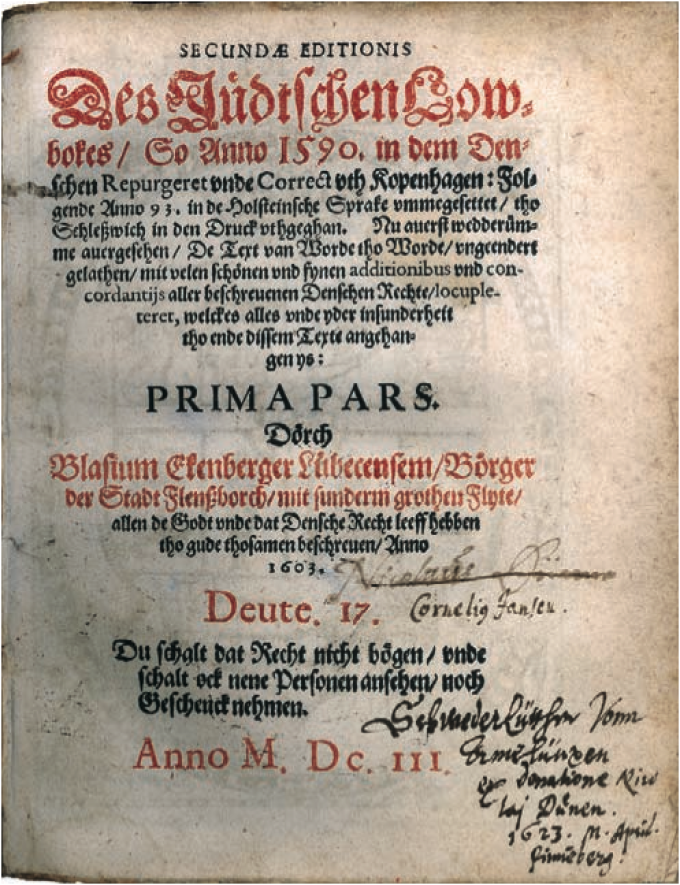 SECUNDÆ EDITIONIS
Des Jüdtschen Low-
bokes / So Anno 1590. in dem Den-
schen Repurgeret vnde Correct vth Kopenhagen: Fol-
gende Anno 93. in de Holsteinsche Sprake vmmegesettet / tho
Schleßwich in den Druck vthgeghan. Nu auerst wedderüm-
me auergesehen / De Text van Worde tho Worde / vngeendert
gelathen / mit velen schönen vnd fynen additionibus vnd con-
cordantijs aller beschreuenen Denschen Rechte / locuple-
teret, welckes alles vnde yder insunderheit
tho ende dissem Texte angehan-
gen ys:
PRIMA PARS.
Dörch
Blasium Ekenberger Lübecensem / Börger
der Stadt Flenßborch / mit sunderm grothen Flyte /
allen de Godt vnde dat Densche Recht leeff hebben
tho gude thosamen beschreuen / Anno
1603.
Nicolaus
Deute. 17.
Cornelis Jansen.
Du schalt dat Recht nicht bögen / vnde
schalt ock nene Personen ansehen / noch
Geschenck nehmen.
Anno M. Dc. III.
Vonn
ex donatione
Dünen.
1623. April.